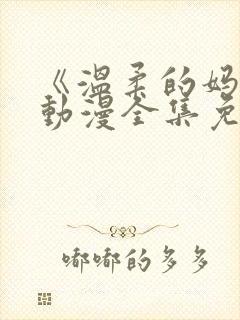 《温柔的妈
动漫全集免
嘟嘟的多多